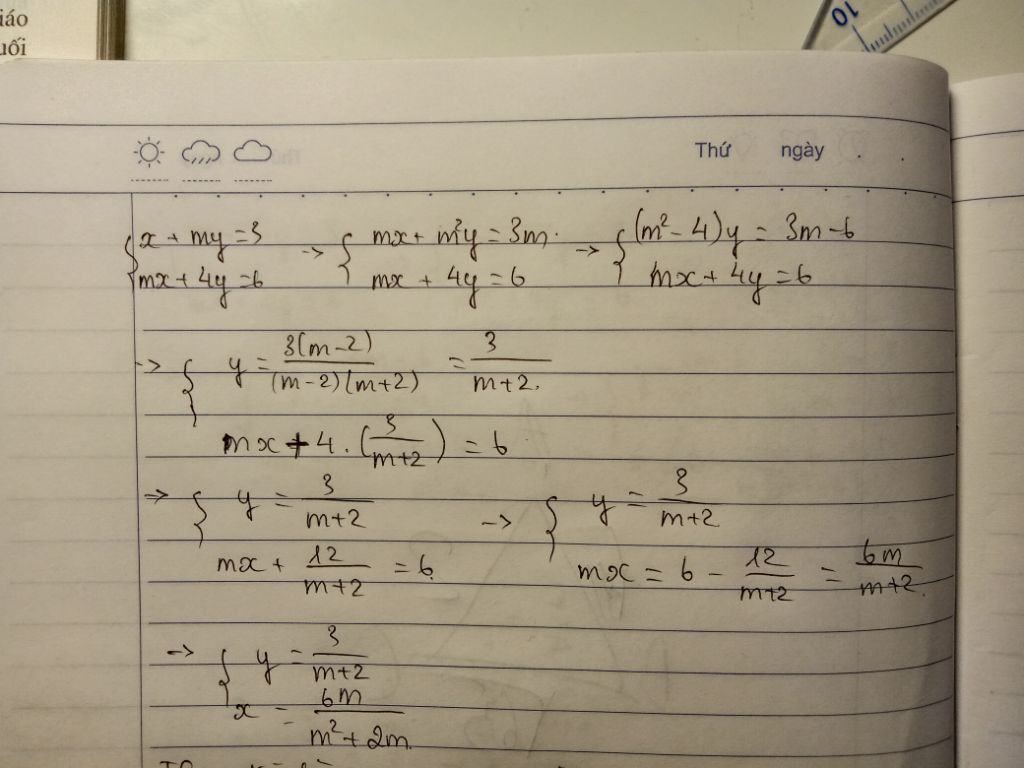 iáo
uối
10
Thứ ngày . .
{ x + my = 3 -> { mx + m²y = 3m. -> { (m² - 4)y = 3m - 6
mx + 4y = 6 mx + 4y = 6 mx + 4y = 6
-> { y = 3(m-2)/(m-2)(m+2) = 3/m+2.
mx + 4 . (3/m+2) = 6
-> { y = 3/m+2 -> { y = 3/m+2
mx + 12/m+2 = 6 mx = 6 - 12/m+2 = 6m/m+2.
-> { y = 3/m+2
x = 6m/m²+2m.